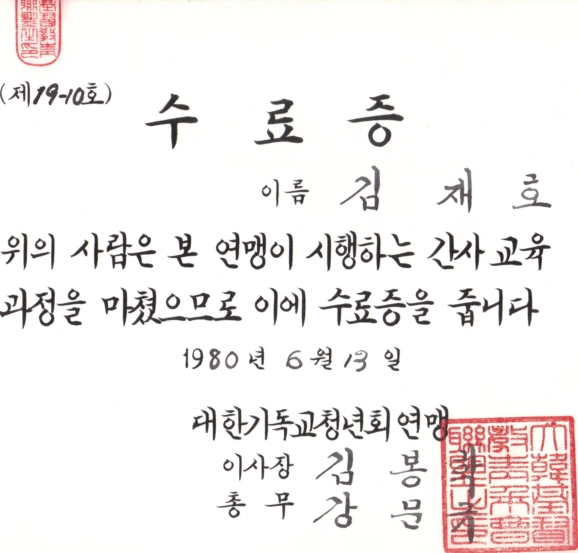 (제19-10호)
수료증
이름 김재호
위의 사람은 본 연맹이 시행하는 간사 교육
과정을 마쳤으므로 이에 수료증을 줍니다
1980년 6월 13일
대한기독교청년회연맹
이사장 김봉학
총무 강문규